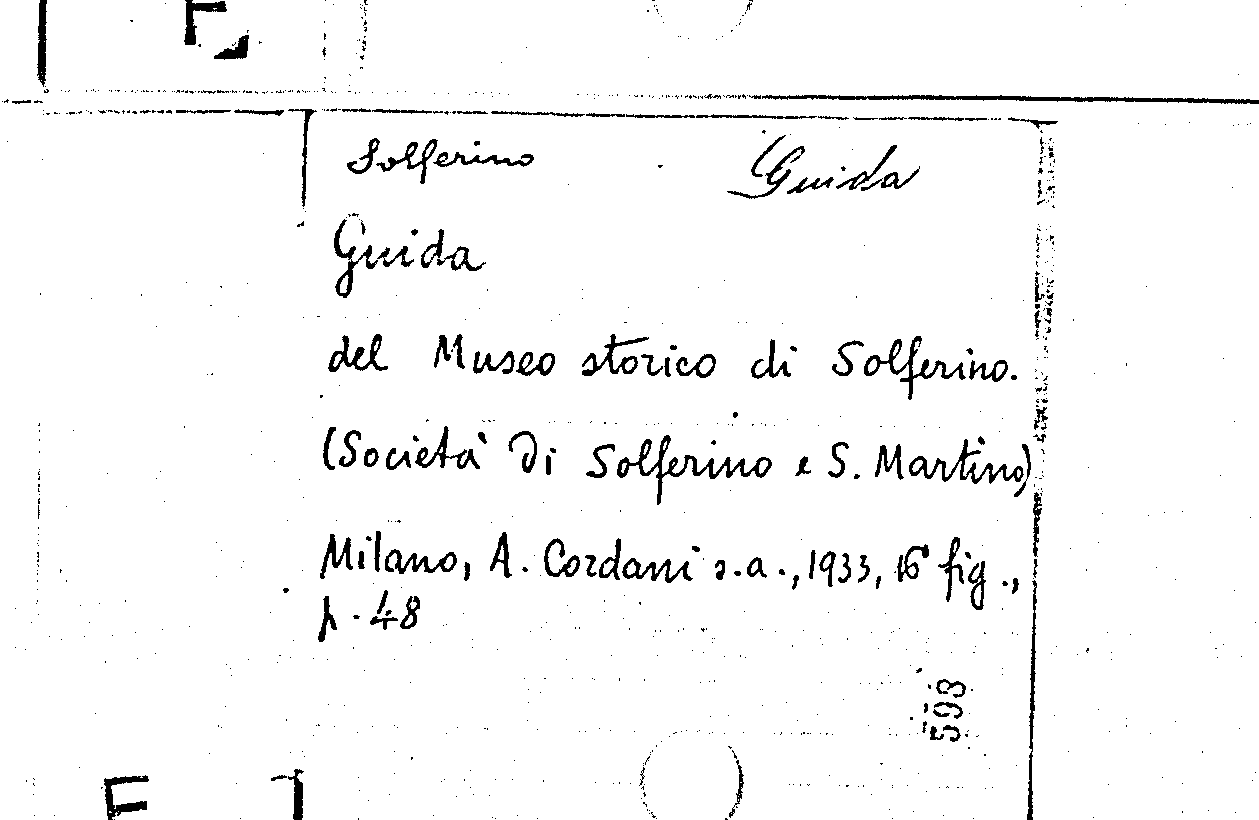 Solferino Guida
Guida
del Museo storico di Solferino.
(Società di Solferino e S. Martino)
Milano, A. Cordani s.a., 1933, 16° fig.,
p. 48
593